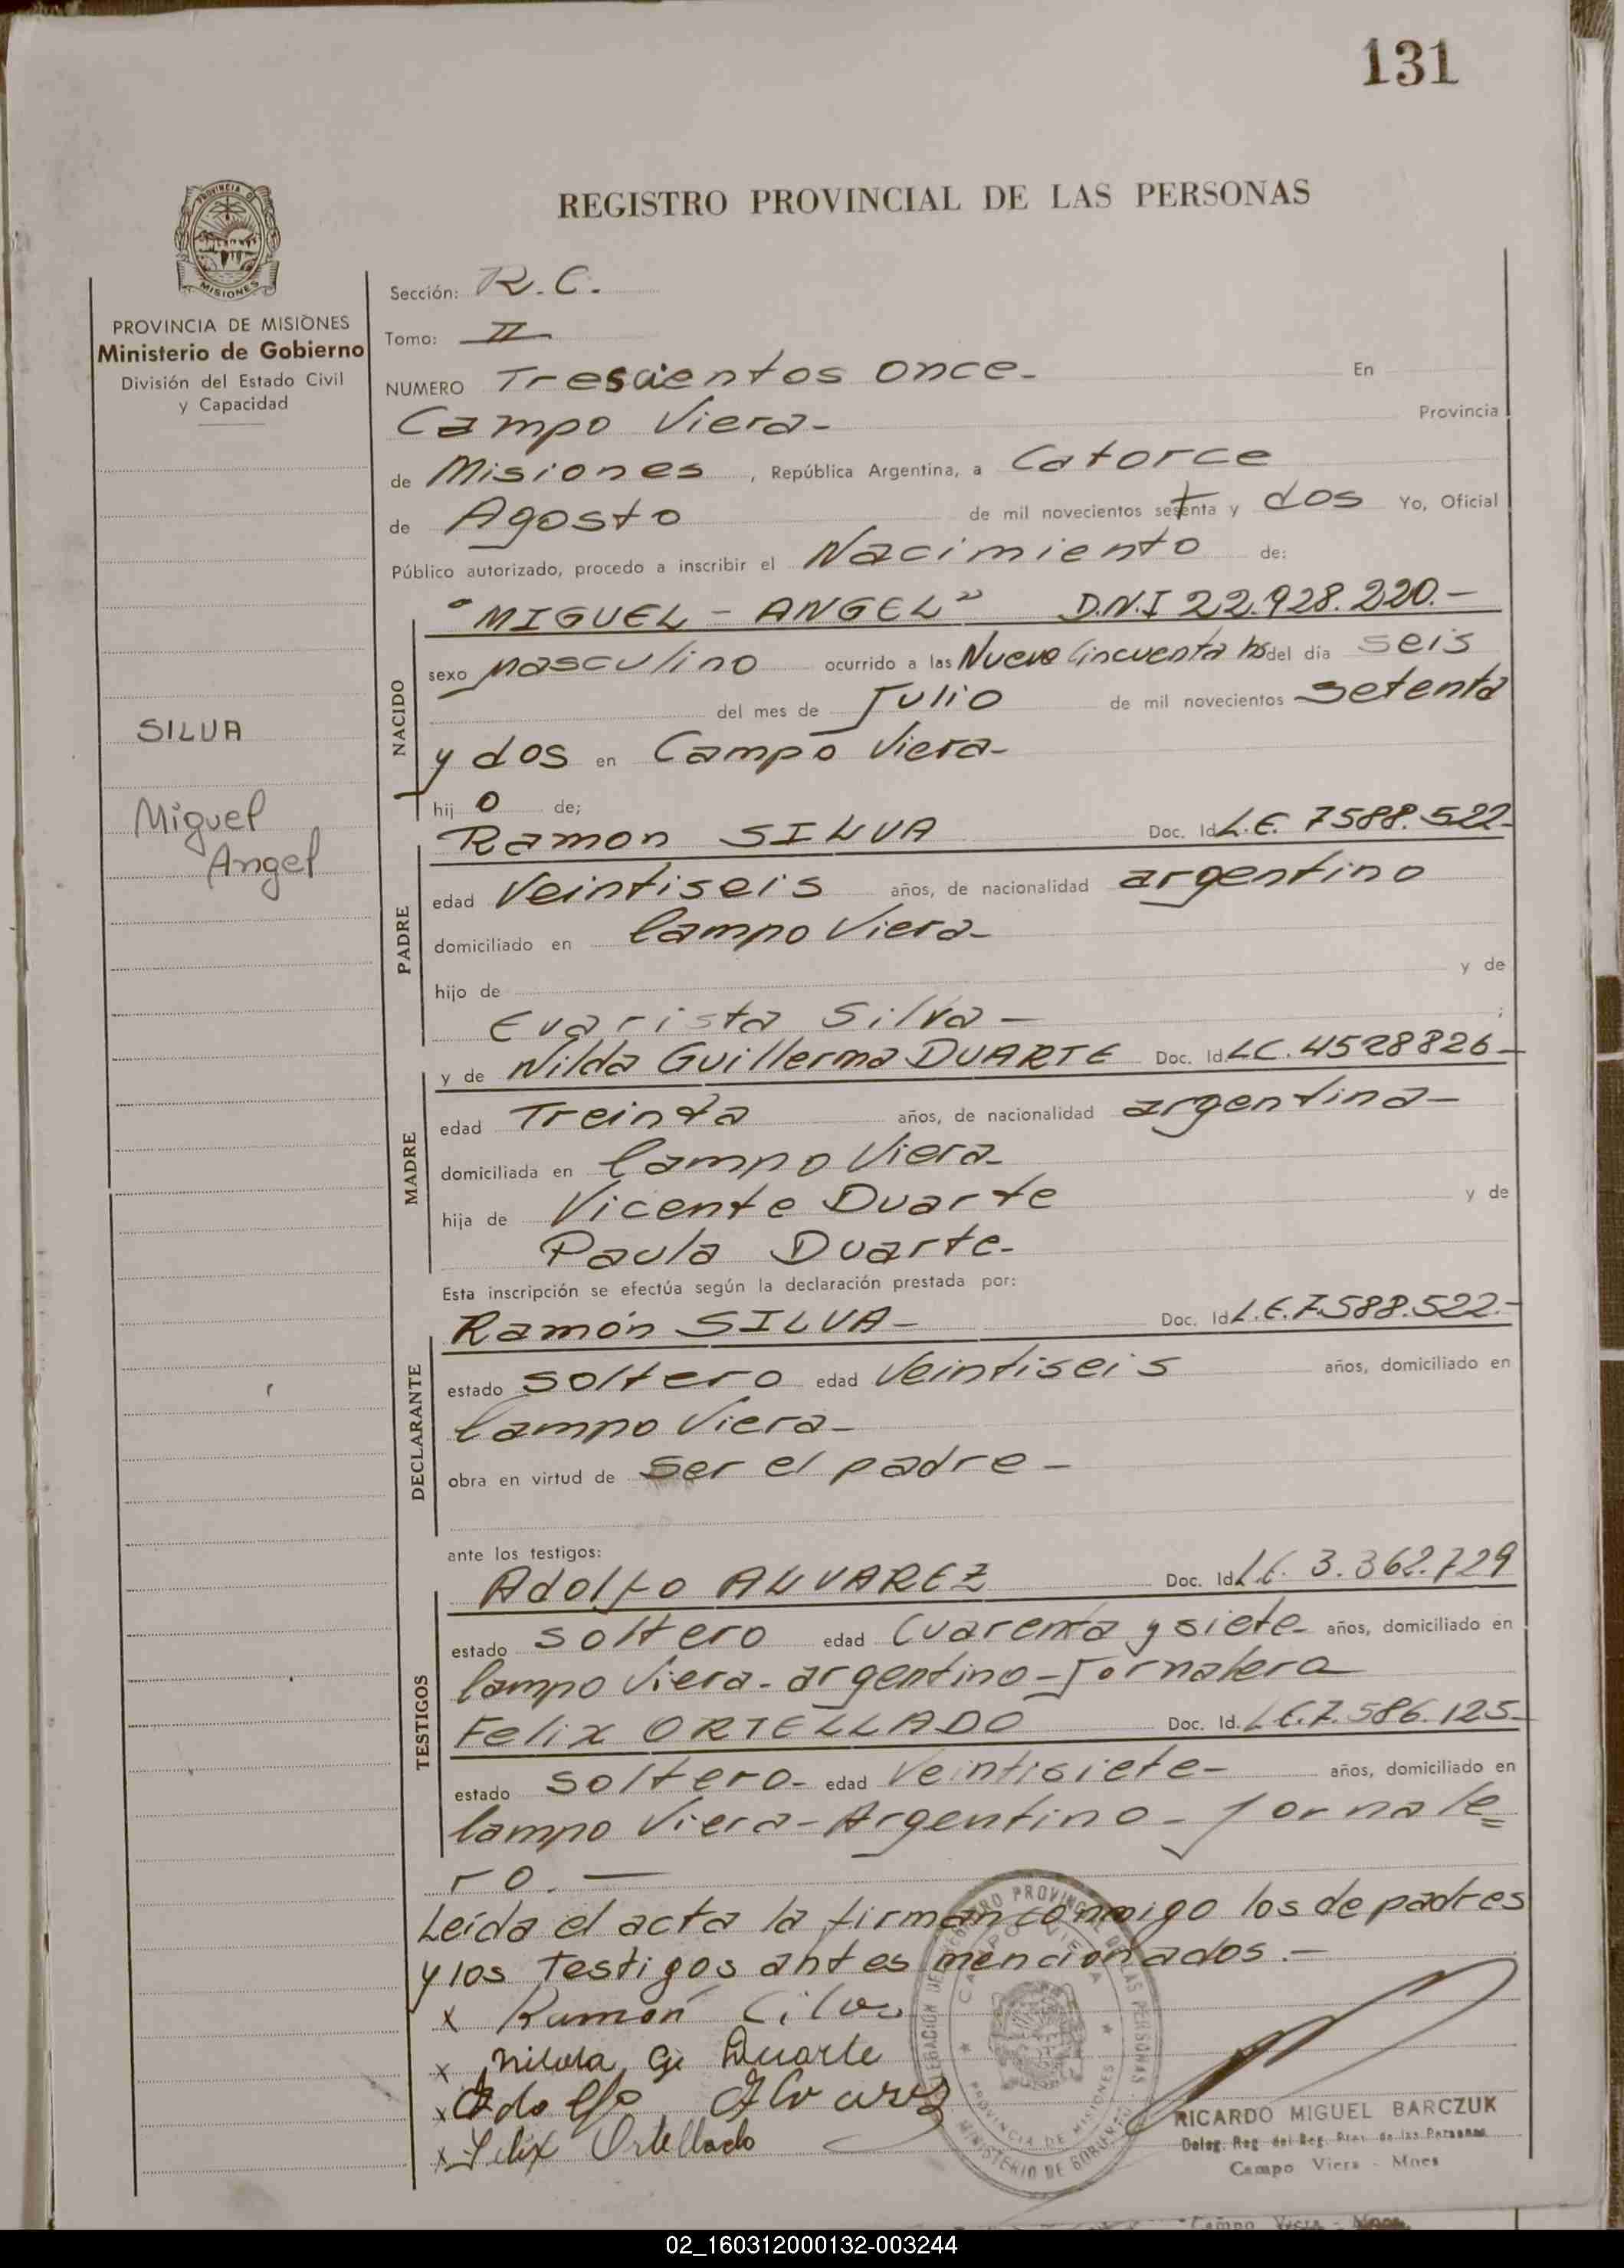 131
REGISTRO PROVINCIAL DE LAS PERSONAS
PROVINCIA DE MISIONES
Ministerio de Gobierno
División del Estado Civil
y Capacidad
SILVA
Miguel
Angel
Sección: R.C.
Tomo: II
NUMERO Trescientos once- En
Campo Viera- Provincia
de Misiones, República Argentina, a Catorce
de Agosto de mil novecientos setenta y dos Yo, Oficial
Público autorizado, procedo a inscribir el Nacimiento de:
"MIGUEL - ANGEL" D.N.I 22.928.220.-
NACIDO
sexo masculino ocurrido a las Nueve Cincuenta hs del día seis
del mes de Julio de mil novecientos setenta
y dos en Campo Viera-
hijo de;
PADRE
Ramon SILVA Doc. Id L.E. 7588.522-
edad Veintiseis años, de nacionalidad argentino
domiciliado en Campo Viera-
hijo de y de
Evarista Silva- ;
MADRE
y de Nilda Guillerma DUARTE Doc. Id LC. 4528826-
edad Treinta años, de nacionalidad argentina-
domiciliada en Campo Viera-
hija de Vicente Duarte y de
Paula Duarte-
Esta inscripción se efectúa según la declaración prestada por:
DECLARANTE
Ramón SILVA- Doc. Id L.E.7.588.522.-
estado soltero edad Veintiseis años, domiciliado en
Campo Viera-
obra en virtud de ser el padre-
ante los testigos:
TESTIGOS
Adolfo ALVAREZ Doc. Id L.E. 3.362.729
estado soltero edad Cuarenta y siete- años, domiciliado en
Campo Viera- argentino- Jornalero
Felix ORTELLADO Doc. Id. L.E.7.586.125-
estado soltero- edad Veintisiete- años, domiciliado en
Campo Viera- Argentino- Jornale=
ro.-
Leída el acta la firman conmigo los de padres
y los Testigos antes mencionados.-
x Ramón Cilva
x Nilda G. Duarte
x Adolfo Alvarez
x Felix Ortellado
DELEGACION DEL REGISTRO PROVINCIAL DE LAS PERSONAS
CAMPO VIERA
PROVINCIA DE MISIONES
MINISTERIO DE GOBIERNO
RICARDO MIGUEL BARCZUK
Deleg. Reg. del Reg. Prov. de las Personas
Campo Viera - Mnes
Campo Viera - Mnes.
02_160312000132-003244